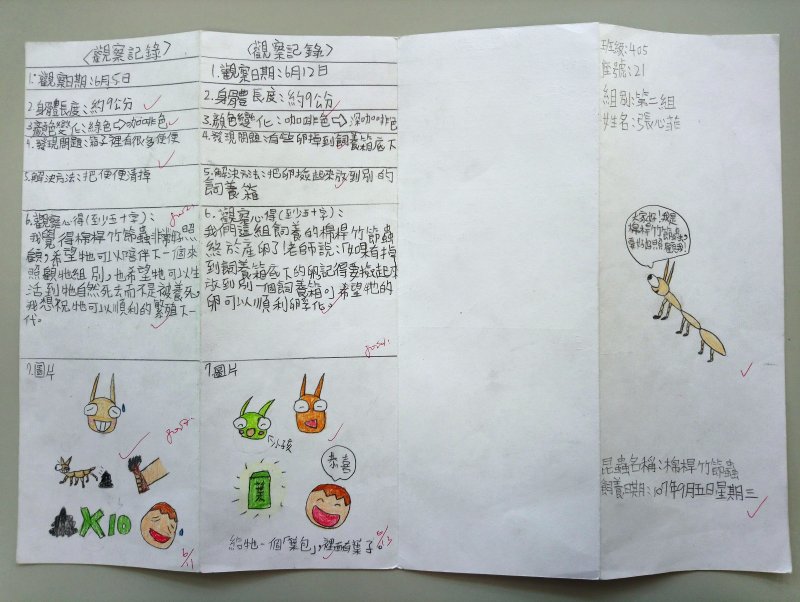 〈觀察記錄〉
1.觀察日期:6月5日
2.身體長度:約9公分
3.顏色變化:綠色⇨咖啡色
4.發現問題:箱子裡有很多便便
5.解決方法:把便便清掉
6.觀察心得(至少五十字):
我覺得棉桿竹節蟲非常好照
顧,希望牠可以陪伴下一個來
照觀牠組別,也希望牠可以生
活到牠自然死去而不是被養死,
我想祝牠可以順利的繁殖下一
代。
7.圖片
X10
6/11
〈觀察記錄〉
1.觀察日期:6月12日
2.身體長度:約9公分
3.顏色變化:咖啡色⇨深咖啡色
4.發現問題:有些卵掉到飼養箱底下
5.解決方法:把卵撿起來放到別的
飼養箱
6.觀察心得(至少五十字):
我們這組飼養的棉桿竹節蟲
終於產卵了!老師說:「如果有掉
到飼養箱底下的卵記得要撿起來
放到別一個飼養箱」希望牠的
卵可以順利孵化。
7.圖片
小孩
葉
恭喜
給牠一個「葉包」,裡面有葉子。
6/13
班級:405
座號:21
組別:第二組
姓名:張心
大家好!我是
棉桿竹節蟲,
要好好照顧我
昆蟲名稱:棉桿竹節蟲
飼養日期:107年9月五日星期三